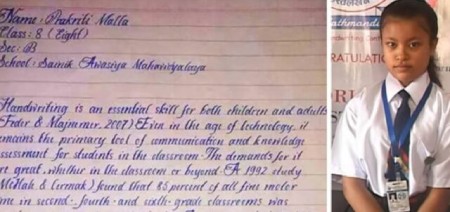 Name: Prakriti Malla
Class: 8 (Eight)
Sec: B
School: Sainik Awasiya Mahavidyalaya
Handwriting is an essential skill for both children and adults
(Feder & Majnemer, 2007) Even in the age of technology, it
remains the primary tool of communication and knowledge
assessment for students in the classroom. The demands for it
are great, whether in the classroom or beyond. A 1992 study
(McHale & Cermak) found that 85 percent of all fine motor
time in second-, fourth- and sixth-grade classrooms was
athmandu
GRATULATI